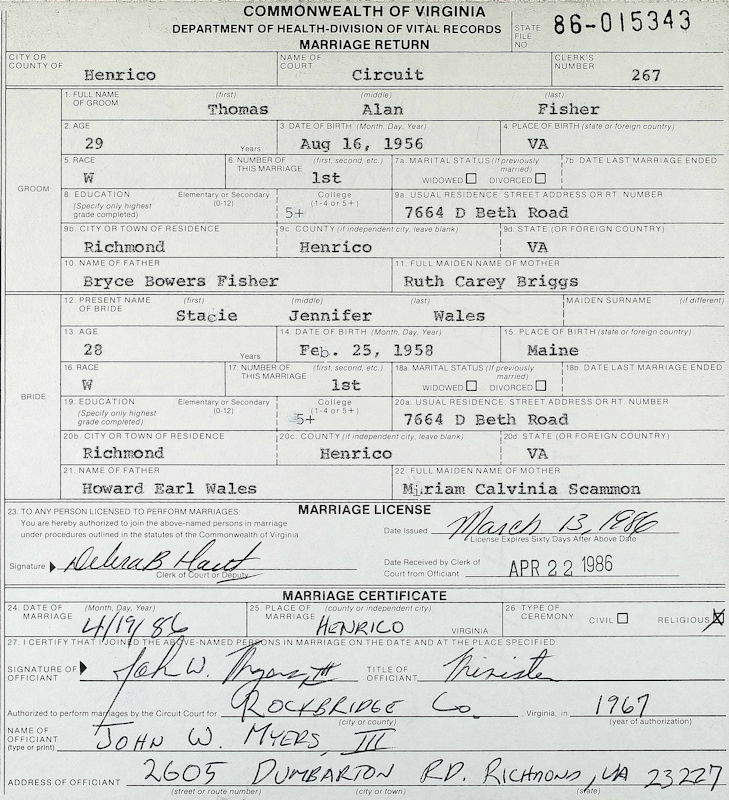 COMMONWEALTH OF VIRGINIA
DEPARTMENT OF HEALTH-DIVISION OF VITAL RECORDS
MARRIAGE RETURN
STATE FILE NO. 86-015343
CITY OR COUNTY OF Henrico NAME OF COURT Circuit CLERK'S NUMBER 267
GROOM
1. FULL NAME OF GROOM (first) (middle) (last)
Thomas Alan Fisher
2. AGE 3. DATE OF BIRTH (Month, Day, Year) 4. PLACE OF BIRTH (state or foreign country)
29 Years Aug 16, 1956 VA
5. RACE 6. NUMBER OF THIS MARRIAGE (first, second, etc.) 7a. MARITAL STATUS (If previously married) 7b. DATE LAST MARRIAGE ENDED
W 1st WIDOWED DIVORCED
8. EDUCATION Elementary or Secondary College 9a. USUAL RESIDENCE: STREET ADDRESS OR RT. NUMBER
(Specify only highest grade completed) (0-12) (1-4 or 5+)
5+ 7664 D Beth Road
9b. CITY OR TOWN OF RESIDENCE 9c. COUNTY (if independent city, leave blank) 9d. STATE (OR FOREIGN COUNTRY)
Richmond Henrico VA
10. NAME OF FATHER 11. FULL MAIDEN NAME OF MOTHER
Bryce Bowers Fisher Ruth Carey Briggs
BRIDE
12. PRESENT NAME OF BRIDE (first) (middle) (last) MAIDEN SURNAME (if different)
Stacie Jennifer Wales
13. AGE 14. DATE OF BIRTH (Month, Day, Year) 15. PLACE OF BIRTH (state or foreign country)
28 Years Feb. 25, 1958 Maine
16. RACE 17. NUMBER OF THIS MARRIAGE (first, second, etc.) 18a. MARITAL STATUS (If previously married) 18b. DATE LAST MARRIAGE ENDED
W 1st WIDOWED DIVORCED
19. EDUCATION Elementary or Secondary College 20a. USUAL RESIDENCE: STREET ADDRESS OR RT. NUMBER
(Specify only highest grade completed) (0-12) (1-4 or 5+)
5+ 7664 D Beth Road
20b. CITY OR TOWN OF RESIDENCE 20c. COUNTY (if independent city, leave blank) 20d. STATE (OR FOREIGN COUNTRY)
Richmond Henrico VA
21. NAME OF FATHER 22. FULL MAIDEN NAME OF MOTHER
Howard Earl Wales Miriam Calvinia Scammon
23. TO ANY PERSON LICENSED TO PERFORM MARRIAGES: MARRIAGE LICENSE
You are hereby authorized to join the above-named persons in marriage
under procedures outlined in the statutes of the Commonwealth of Virginia
Date Issued March 13, 1986
License Expires Sixty Days After Above Date
Signature Debra B
Clerk of Court or Deputy
Date Received by Clerk of Court from Officiant APR 22 1986
MARRIAGE CERTIFICATE
24. DATE OF MARRIAGE (Month, Day, Year) 25. PLACE OF MARRIAGE (county or independent city) 26. TYPE OF CEREMONY CIVIL RELIGIOUS X
4/19/86 HENRICO VIRGINIA
27. I CERTIFY THAT I JOINED THE ABOVE-NAMED PERSONS IN MARRIAGE ON THE DATE AND AT THE PLACE SPECIFIED.
SIGNATURE OF OFFICIANT John W. Myers, III TITLE OF OFFICIANT Minister
Authorized to perform marriages by the Circuit Court for ROCKBRIDGE Co. , Virginia, in 1967
(city or county) (year of authorization)
NAME OF OFFICIANT (type or print) JOHN W. MYERS, III
ADDRESS OF OFFICIANT 2605 DUMBARTON RD. RICHMOND, VA 23227
(street or route number) (city or town) (state)